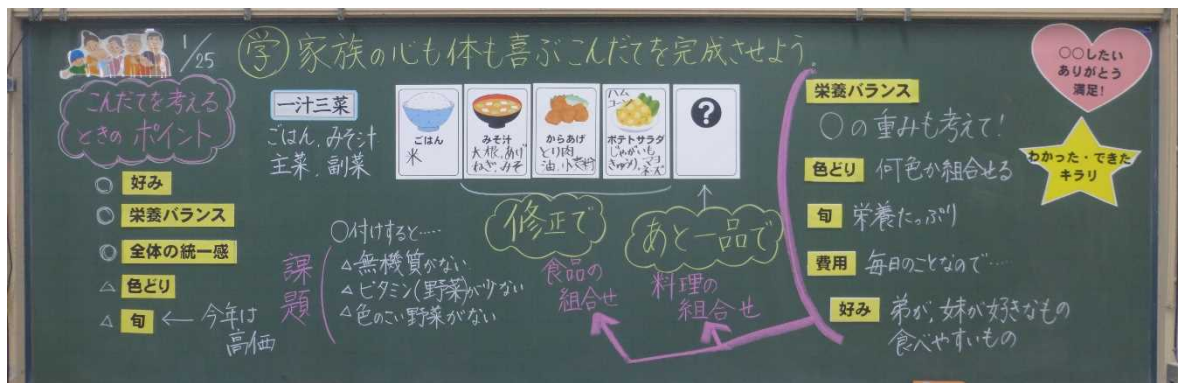 1/25
学 家族の心も体も喜ぶこんだてを完成させよう.
こんだてを考える
ときの ポイント
◎ 好み
◎ 栄養バランス
◎ 全体の統一感
△ 色どり
△ 旬 ← 今年は
高価
一汁三菜
ごはん、みそ汁
主菜、副菜
ごはん
米
みそ汁
大根、あげ
ねぎ、みそ
からあげ
とり肉
油、小麦粉
ハム
コーン
ポテトサラダ
じゃがいも
きゅうり、マヨ
ネーズ
?
修正で
あと一品で
課題
○付けすると……
△無機質がない
△ビタミン(野菜)が少ない
△色のこい野菜がない
食品の
組合せ
料理の
組合せ
栄養バランス
○の重みも考えて!
色どり 何色か組合せる
旬 栄養たっぷり
費用 毎日のことなので…
好み 弟が、妹が好きなもの
食べやすいもの
○○したい
ありがとう
満足!
わかった・できた
キラリ